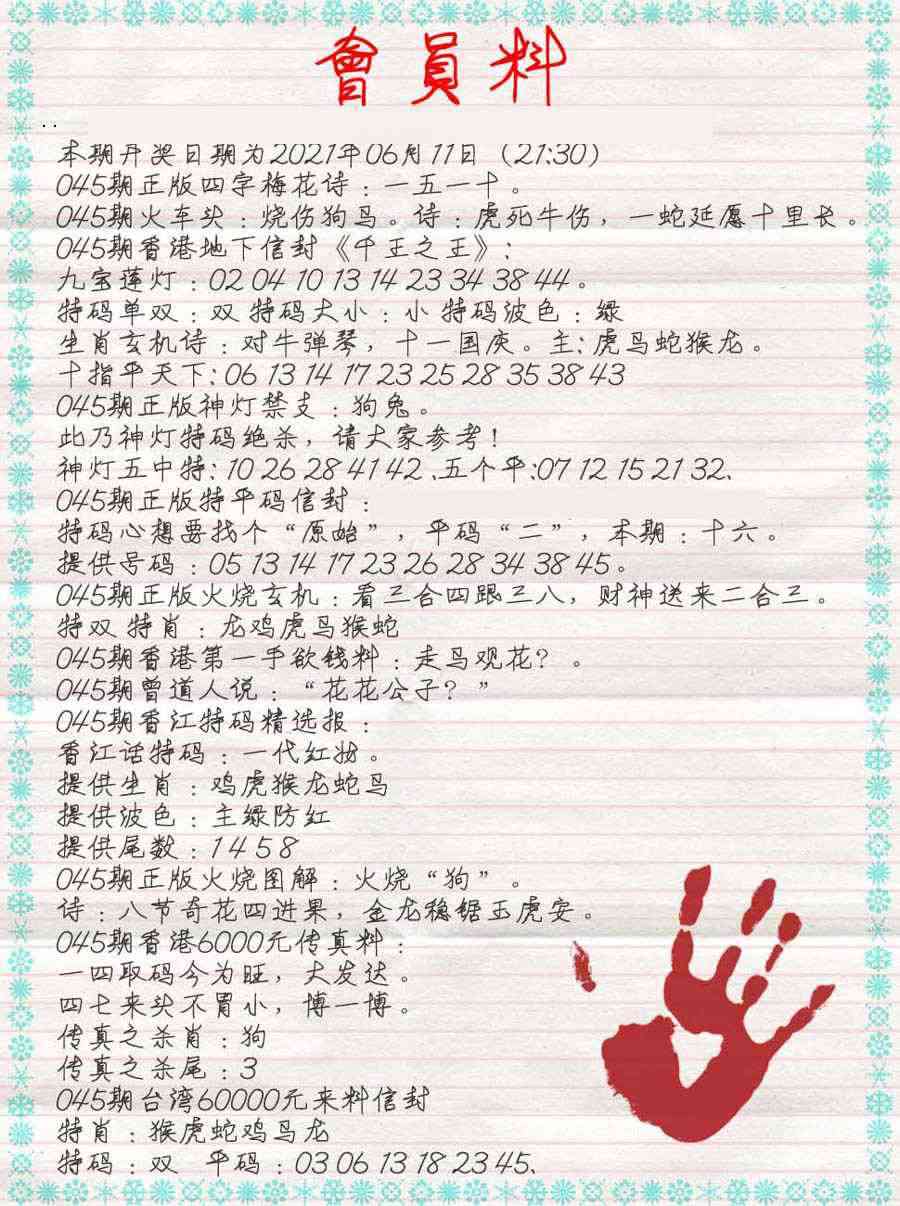 會員料
..
本期开奖日期为2021年06月11日（21:30）
045期正版四字梅花诗：一五一十。
045期火车头：烧伤狗马。诗：虎死牛伤，一蛇延愿十里长。
045期香港地下信封《千王之王》：
九宝莲灯：02 04 10 13 14 23 34 38 44。
特码单双：双 特码大小：小 特码波色：绿
生肖玄机诗：对牛弹琴，十一国庆。主：虎马蛇猴龙。
十指平天下：06 13 14 17 23 25 28 35 38 43
045期正版神灯禁支：狗兔。
此乃神灯特码绝杀，请大家参考！
神灯五中特：10 26 28 41 42 、五个平：07 12 15 21 32、
045期正版特平码信封：
特码心想要找个“原始”，平码“二”，本期：十六。
提供号码：05 13 14 17 23 26 28 34 38 45。
045期正版火烧玄机：看三合四跟三八，财神送来二合三。
特双 特肖：龙鸡虎马猴蛇
045期香港第一手欲钱料：走马观花？。
045期曾道人说：“花花公子？”
045期香江特码精选报：
香江话特码：一代红妆。
提供生肖：鸡虎猴龙蛇马
提供波色：主绿防红
提供尾数：1 4 5 8
045期正版火烧图解：火烧“狗”。
诗：八节奇花四进果，金龙稳锯玉虎安。
045期香港6000元传真料：
一四取码今为旺，大发达。
四七来头不胃小，博一博。
传真之杀肖：狗
传真之杀尾：3
045期台湾60000元来料信封
特肖：猴虎蛇鸡马龙
特码：双 平码：03 06 13 18 23 45、